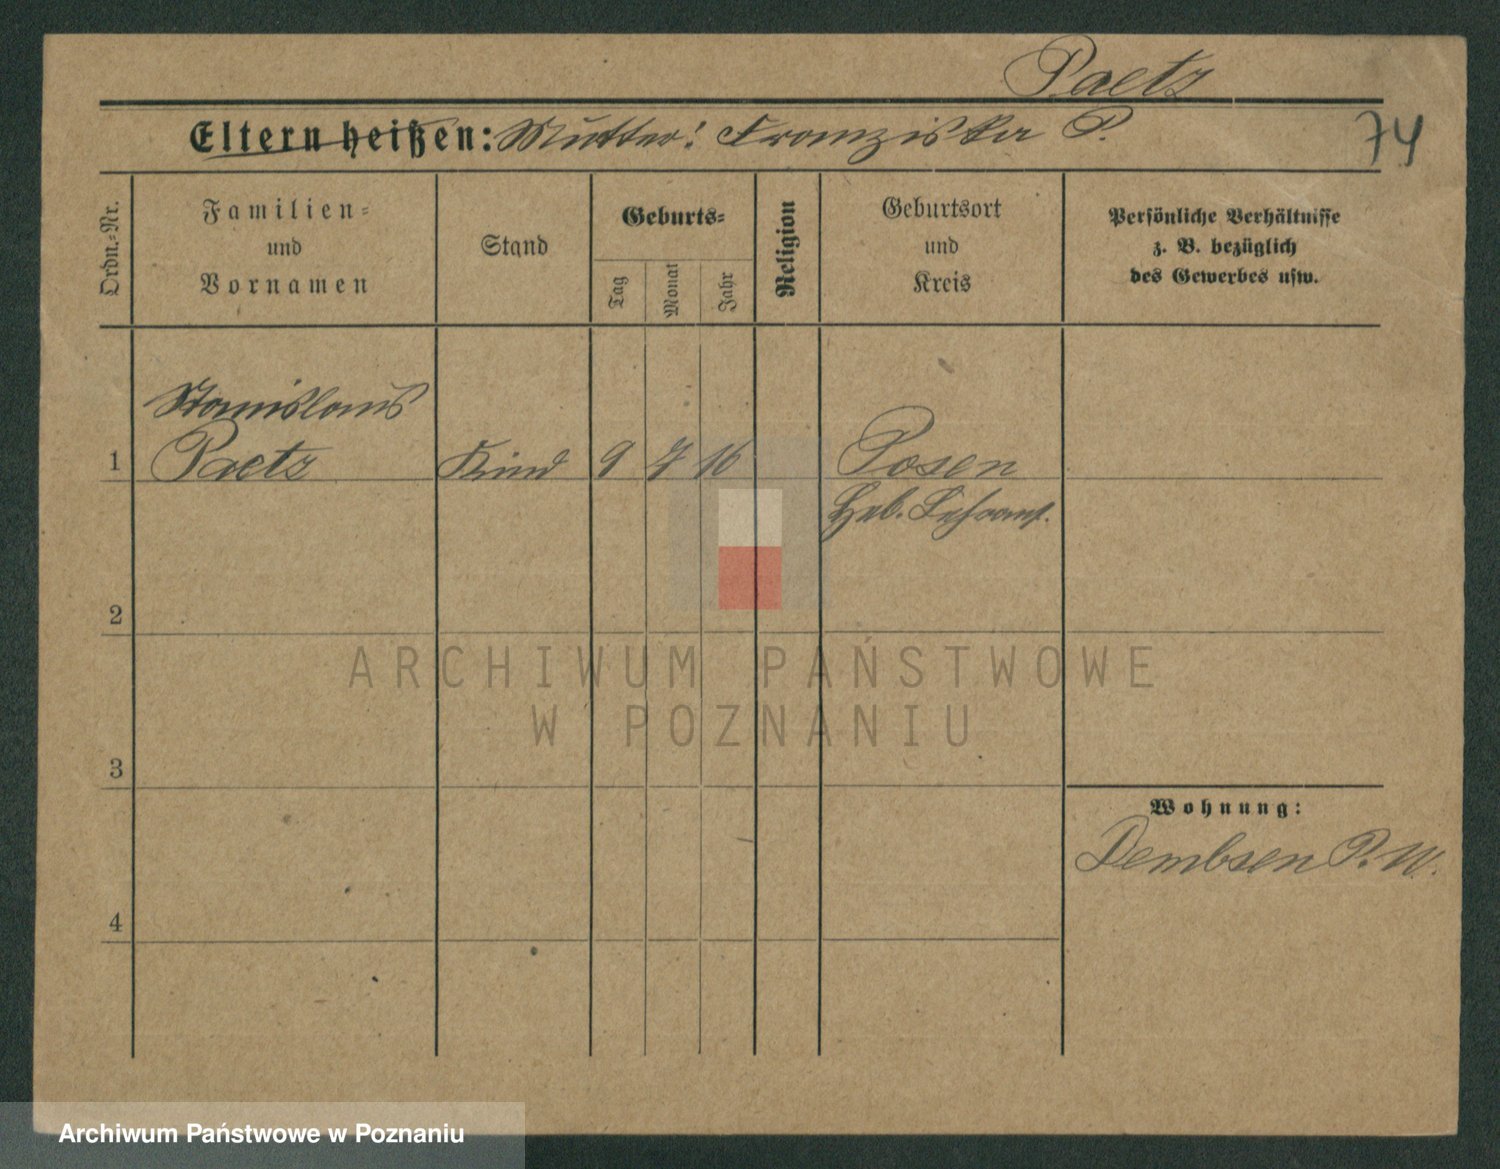 Paetz
Eltern heißen: Mutter: Franziska P.
74
Ordn.-Nr.
Familien-
und
Vornamen
Stand
Geburts-
Tag
Monat
Jahr
Religion
Geburtsort
und
Kreis
Persönliche Verhältnisse
z. B. bezüglich
des Gewerbes usw.
Stanislaus
1 Paetz Kind 9 7 16 Posen
Heb. Lehranst.
2
ARCHIWUM PAŃSTWOWE
W POZNANIU
3
Wohnung:
Dembsen P. W.
4
Archiwum Państwowe w Poznaniu